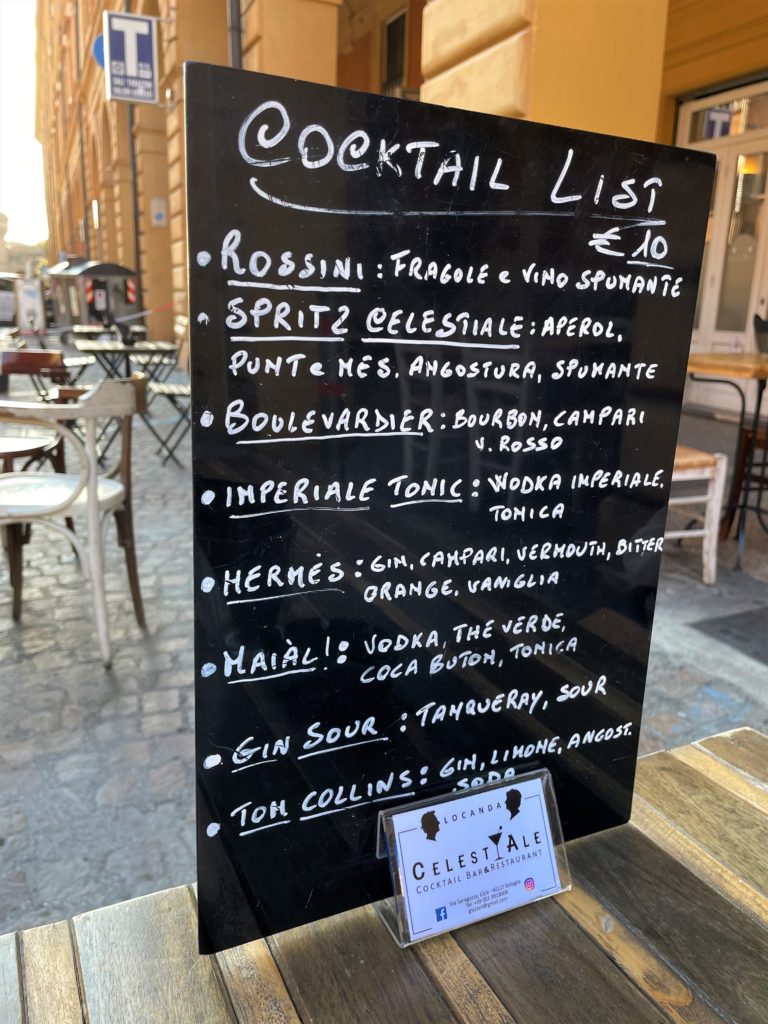 T
COCKTAIL LIST
€ 10
• ROSSINI: FRAGOLE e VINO SPUMANTE
• SPRITZ CELESTIALE: APEROL,
PUNT e MES. ANGOSTURA, SPUMANTE
• BOULEVARDIER: BOURBON, CAMPARI
V. ROSSO
• IMPERIALE TONIC: WODKA IMPERIALE,
TONICA
• HERMÈS: GIN, CAMPARI, VERMOUTH, BITTER
ORANGE, VANIGLIA
• MAIÀL!: VODKA, THE VERDE,
COCA BUTON, TONICA
• GIN SOUR: TANQUERAY, SOUR
• TOM COLLINS: GIN, LIMONE, ANGOST.
SODA
LOCANDA
CELESTYALE
COCKTAIL BAR & RESTAURANT